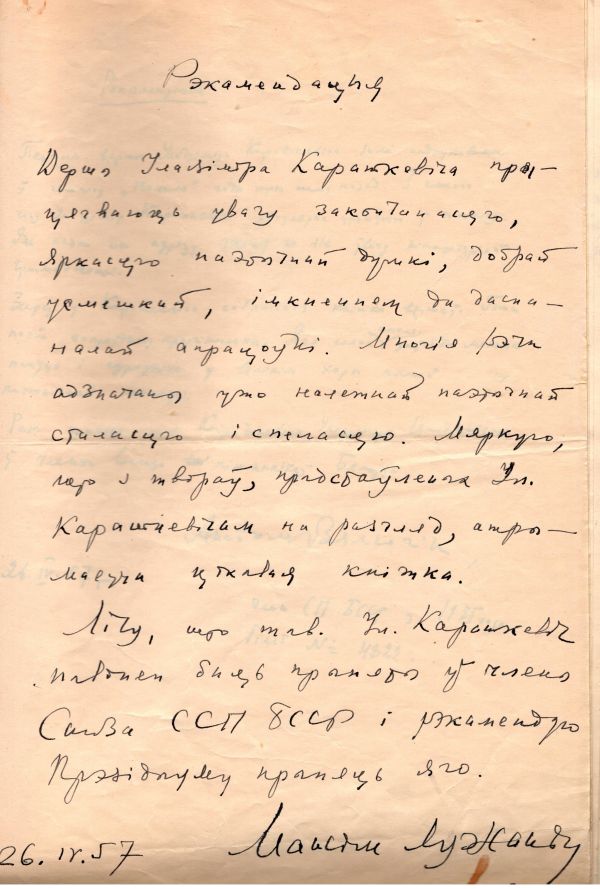 Рэкамендацыя
Вершы Уладзіміра Караткевіча пры-
цягваюць увагу закончанасцю,
яркасцю паэтычнай думкі, добрай
усмешкай, імкненнем да даска-
налай апрацоўкі. Многія рэчы
адзначаны ужо належнай паэтычнай
сталасцю і спеласцю. Мяркую,
што з твораў, прадстаўленых Ул.
Караткевічам на разгляд, атры-
маецца цікавая кніжка.
Лічу, што тав. Ул. Караткевіч
павінен быць прыняты ў члены
Саюза ССП БССР і рэкамендую
Прэзідыуму прыняць яго.
26. IV. 57 Максім Лужанін